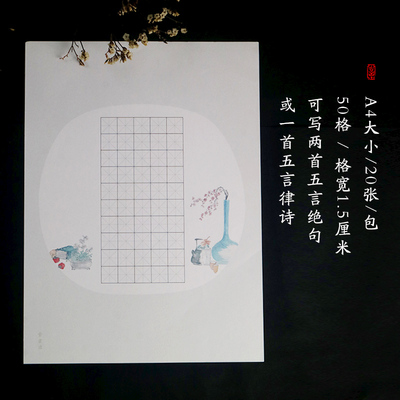 A4大小/20张/包
50格 / 格宽1.5厘米
可写两首五言绝句
或一首五言律诗